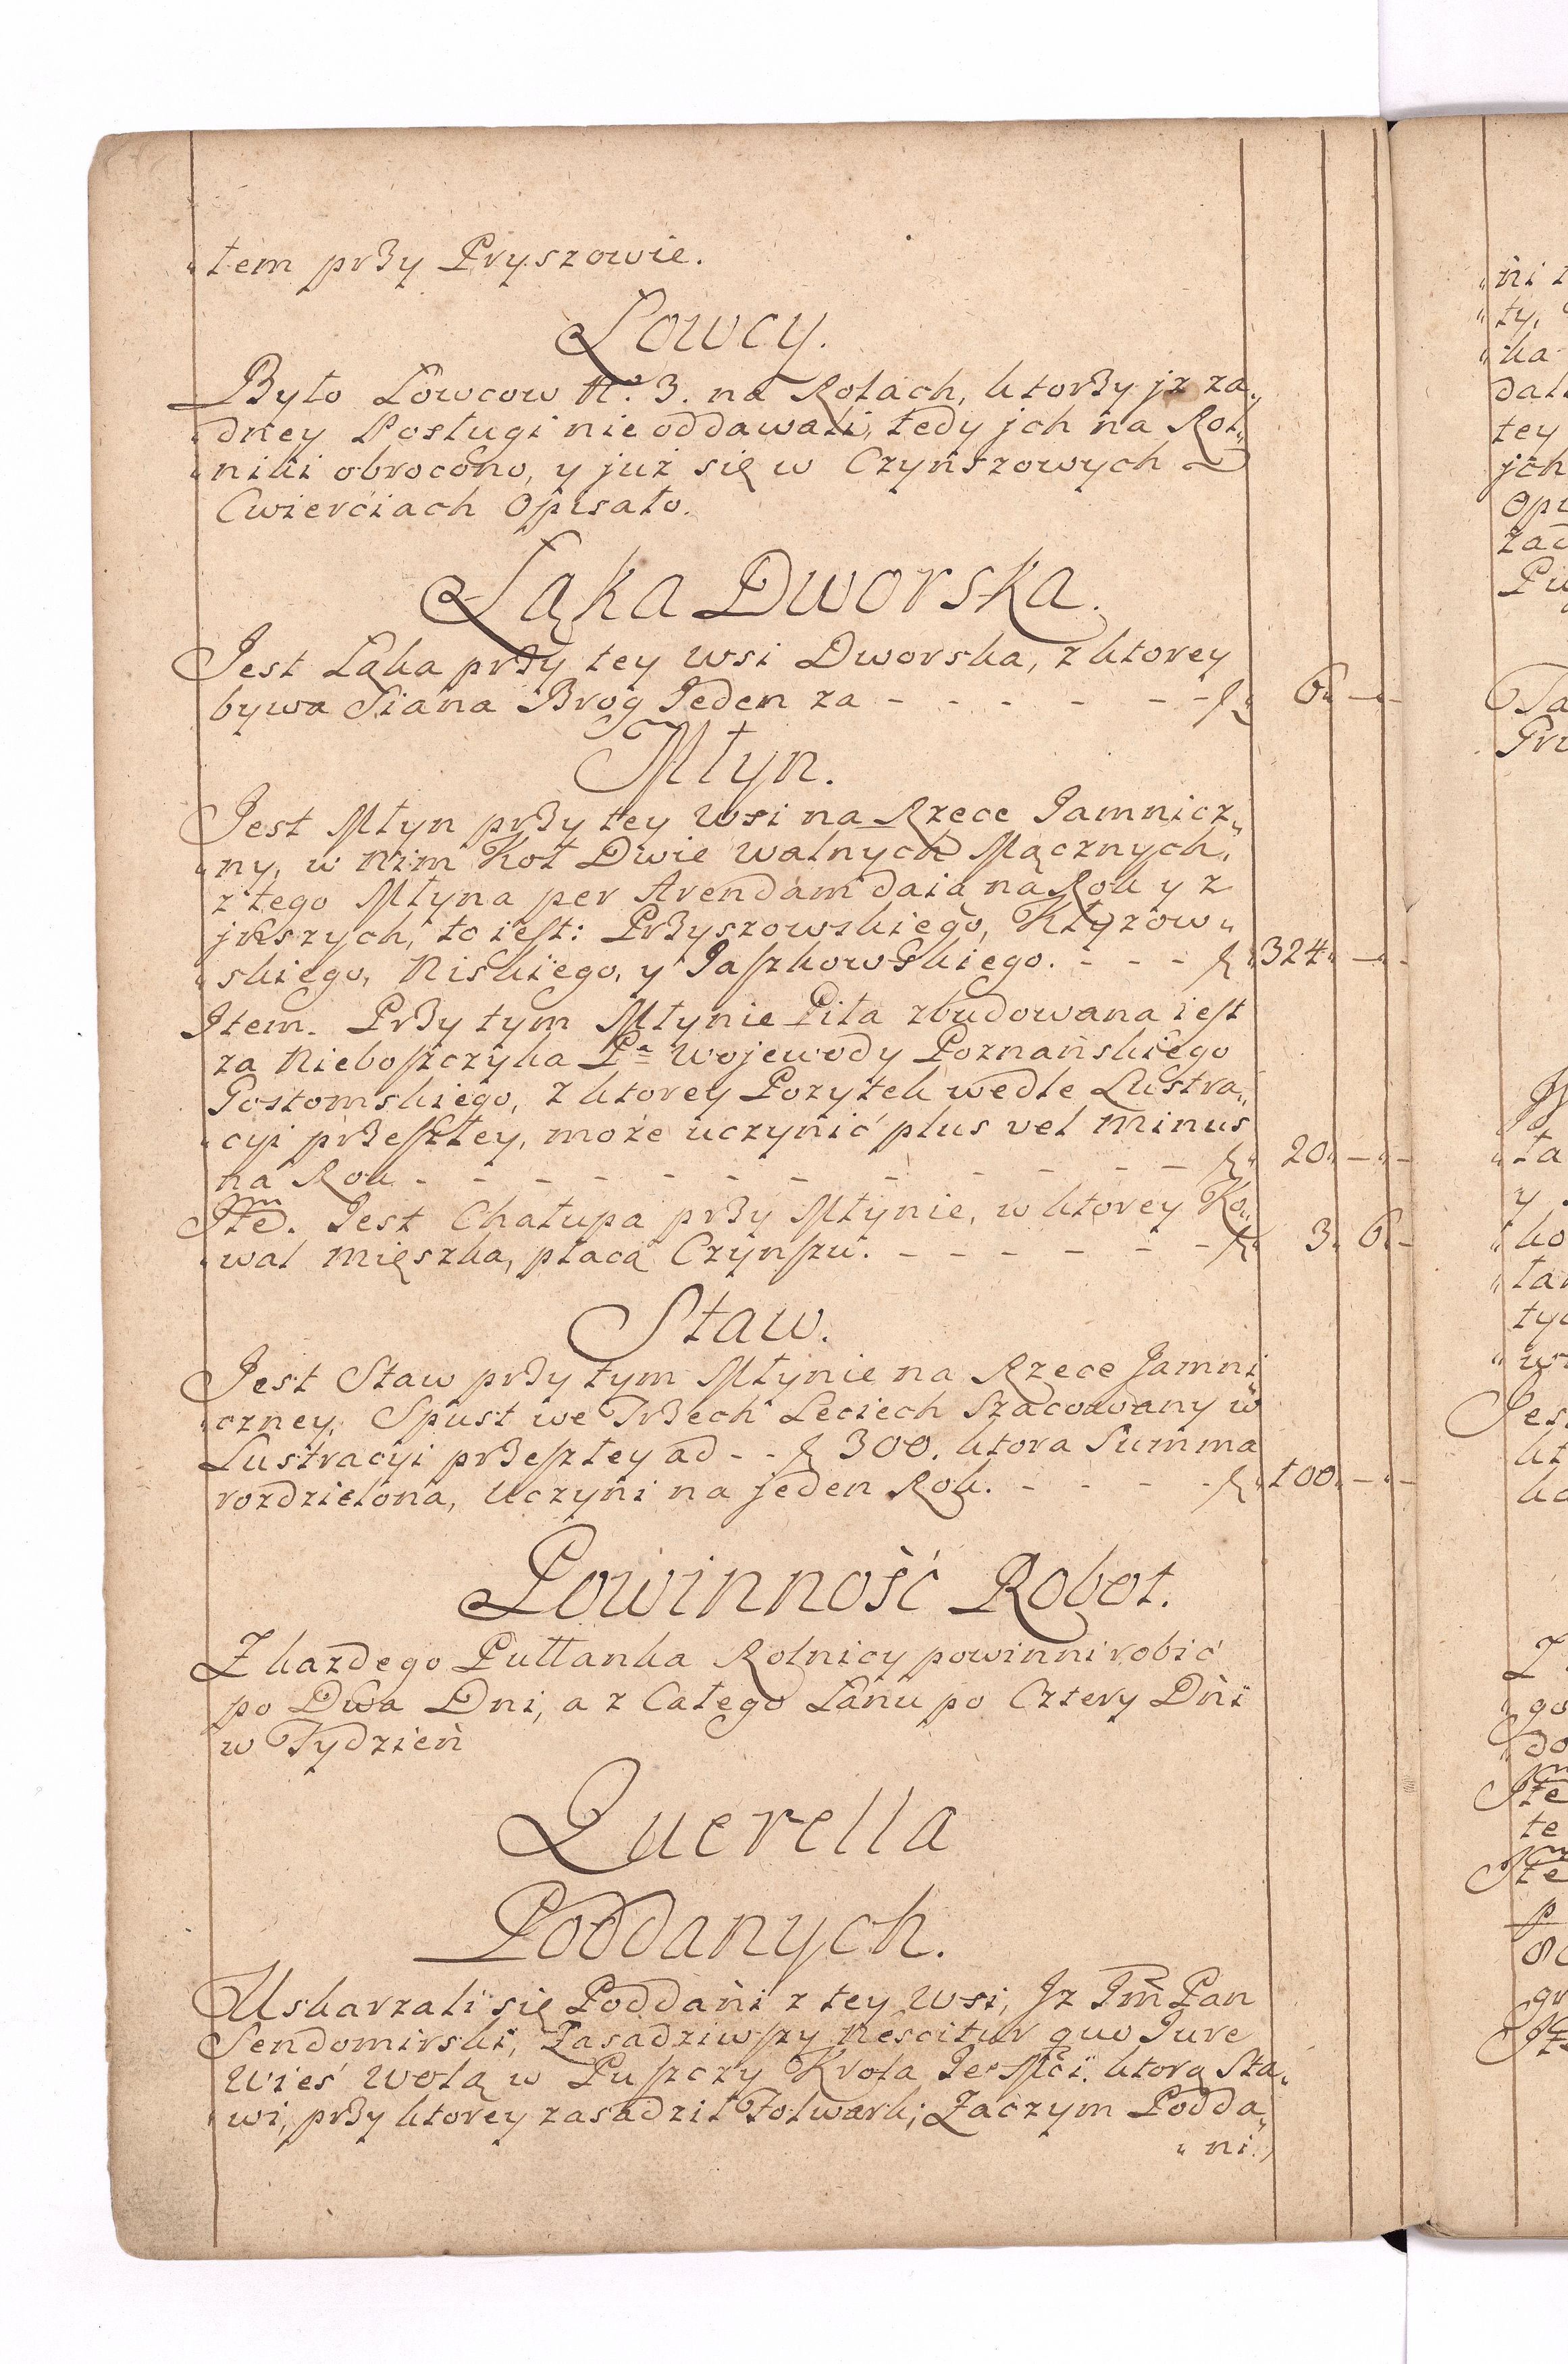 „tem przy Pryszowie.
Łowcy.
Było Łowcow N.º 3. na Rolach, ktorzy jz ża„
„dney Posługi nie oddawali, tedy jch na Rol„
„niki obrocono, y już się w Czynszowych
Cwierciach Opisało.
Łąka Dworska.
Jest Łąka przy tey wsi Dworska, z ktorey
bywa Siana Brog Jeden za - - - - - - f„ 6„ —„—
Młyn.
Jest Młyn przy tey Wsi na Rzece Jamnicz„
„ny, w nim Koł Dwie Walnych Mącznych,
z tego Młyna per Arendam daią na Rok y z
jnszych, to iest: Przyszowskiego, Kłyżow„
„skiego, Niskiego, y Jaszkowskiego. - - - f„ 324„ —„—
Item. Przy tym Młynie Piła zbudowana iest
za Nieboszczyka Pª Wojewody Poznańskiego
Gostomskiego, z ktorey Pożytek wedle Lustra„
„cyi przeszłey, może uczynić plus vel minus
na Rok - - - - - - - - - - f„ 20„ —„—
Itẽ. Jest Chałupa przy Młynie, w ktorey Ko„
„wal mięszka, płaca Czynszu. - - - - - - f„ 3„ 6„—
Staw.
Jest Staw przy tym Młynie na Rzece Jamni„
„czney, Spust we Trzech Leciech Szacowany w
Lustracyi przeszłey ad - - f 300. ktora Summa
rozdzielona, Uczyni na jeden Rok. - - - - f„ 100„ —„—
Powinność Robot.
Z każdego Pułłanka Rolnicy powinni robić
po Dwa Dni, a z Całego Łanu po Cztery Dni
w Tydzień
Querella
Poddanych.
Uskarżali się Poddani z tey Wsi, Jż Jm̃ Pan
Sendomirski, Zasadziwszy nescitur quo Jure
Wieś Wolą w Puszczy Krola Jeº Mści. ktorą Sta„
„wi, przy ktorey zasadził Folwark; Zaczym Podda„
„ni.